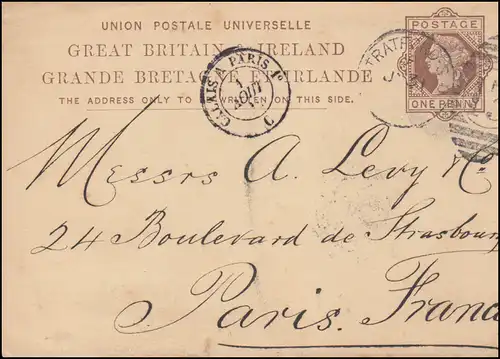 UNION POSTALE UNIVERSELLE
GREAT BRITAIN & IRELAND
GRANDE BRETAGNE ET IRLANDE
THE ADDRESS ONLY TO BE WRITTEN ON THIS SIDE.
POSTAGE
ONE PENNY
CALAIS A PARIS 1º
AOUT
C
Messrs A. Levy & Co
24 Boulevard de Strasbourg
Paris. France